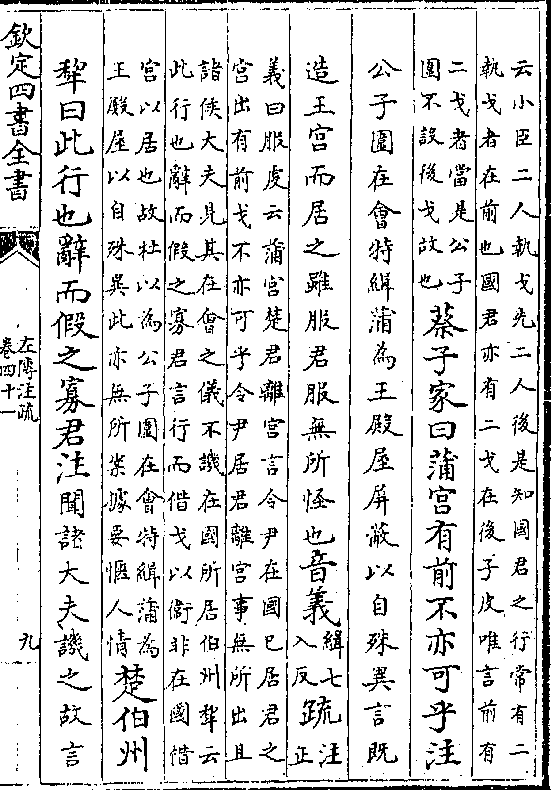 云小臣二人執戈先二人後是知國君之行常有二
執戈者在前也國君亦有二戈在後子皮唯言前有
二戈者當是公子
圍不設後戈故也
蔡子家曰蒲宮有前不亦可乎注
公子圍在會特緝蒲為王殿屋屏蔽以自殊異言既
造王宮而居之雖服君服無所怪也音義
緝七
入反
疏
注
正
義曰服虔云蒲宮楚君離宮言令尹在國已居君之
宮出有前戈不亦可乎令尹居君離宮事無所出且
諸侯大夫見其在會之儀不譏在國所居伯州犂云
此行也辭而假之寡君言行而借戈以衞非在國借
宮以居也故杜以為公子圍在會特緝蒲為
王殿屋以自殊異此亦無所案據要愜人情
楚伯州
犂曰此行也辭而假之寡君注聞諸大夫譏之故言
欽定四書全書
左傳注疏
卷四十一
九